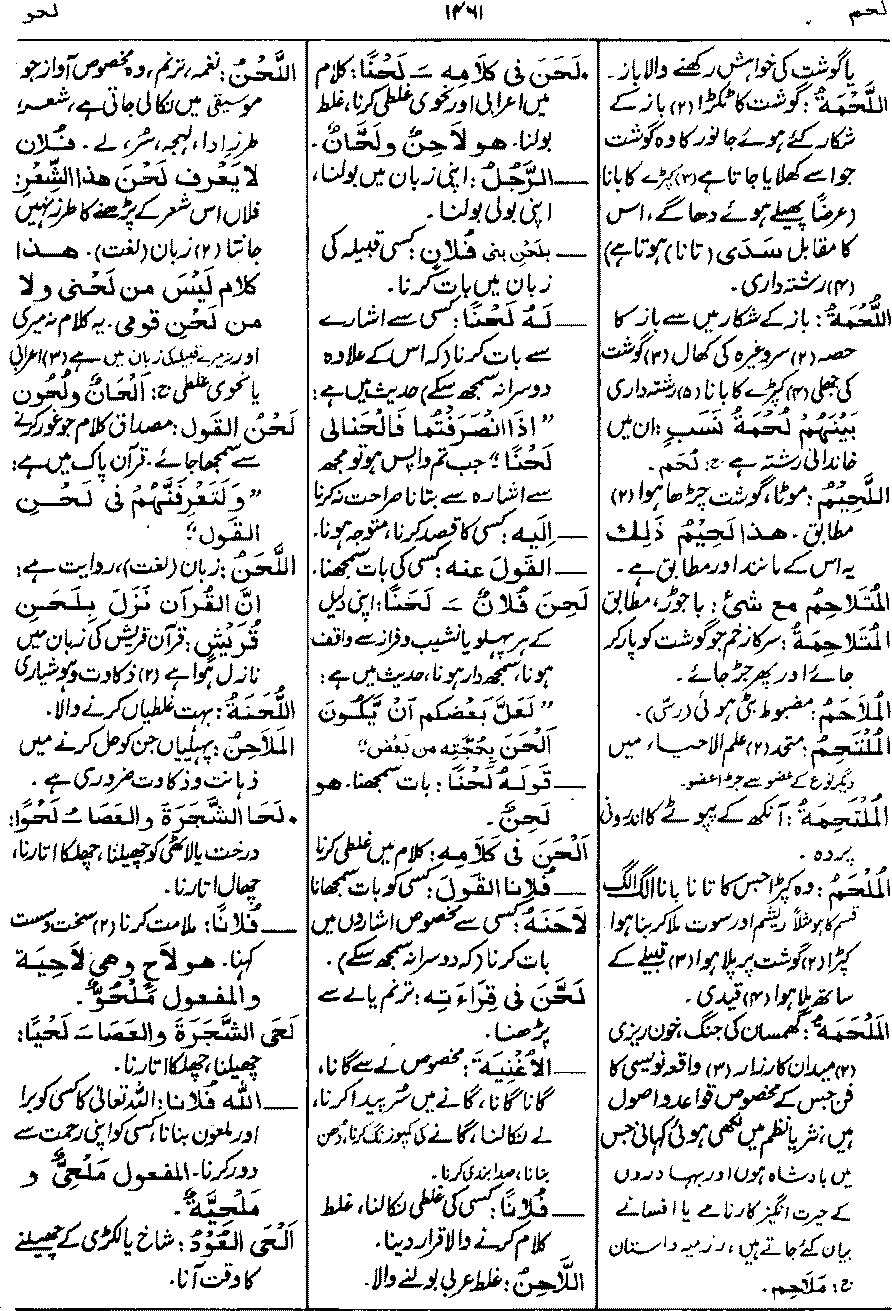 لحم
۱۴۶۱
لحو
یا گوشت کی خواہش رکھنے والا باز۔
اللَّحْمَةُ: گوشت کا ٹکڑا (۲) باز کے
شکار کئے ہوئے جانور کا وہ گوشت
جو اسے کھلایا جاتا ہے (۳) کپڑے کا بانا
(عرضًا پھیلے ہوئے دھاگے، اس
کا مقابل سَدَی (تانا) ہوتا ہے)
(۴) رشتہ داری۔
اللُّحْمَةُ: باز کے شکار میں سے باز کا
حصہ (۲) سر وغیرہ کی کھال (۳) گوشت
کی جھلی (۴) کپڑے کا بانا (۵) رشتہ داری
بَیْنَهُمْ لُحْمَةُ نَسَبٍ: ان میں
خاندانی رشتہ ہے ج: لُحَم۔
اللَّحِیْمُ: موٹا، گوشت چڑھا ہوا (۲)
مطابق۔ هذا لَحِیْمُ ذَلِكَ
یہ اس کے مانند اور مطابق ہے۔
المُتَلَاحِمُ مع شئ: باجوڑ، مطابق
المُتَلَاحِمَةُ: سر کا زخم جو گوشت کو پار کر
جائے اور پھر جڑ جائے۔
المُلَاحَمُ: مضبوط بٹی ہوئی (رسّی)۔
المُلْتَحِمُ: متحد (۲) علم الاحیاء میں
دیگر نوع کے عضو سے جڑا عضو۔
المُلْتَحِمَةُ: آنکھ کے پپوٹے کا اندرونی
پردہ۔
المُلْحَمُ: وہ کپڑا جس کا تانا بانا الگ الگ
قسم کا ہو مثلاً ریشم اور سوت ملا کر بنا ہوا
کپڑا (۲) گوشت پر پلا ہوا (۳) قبیلے کے
ساتھ ملا ہوا (۴) قیدی۔
المَلْحَمَةُ: گھمسان کی جنگ، خون ریزی
(۲) میدان کارزار (۳) واقعہ نویسی کا
فن جس کے مخصوص قواعد و اصول
ہیں، نثر یا نظم میں لکھی ہوئی کہانی جس
میں بادشاہوں اور بہادروں
کے حیرت انگیز کارنامے یا افسانے
بیان کئے جاتے ہیں، رزمیہ داستان
ج: مَلَاحِم۔
• لَحَنَ فی کلامه ـَ لَحْنًا: کلام
میں اعرابی اور نحوی غلطی کرنا، غلط
بولنا۔ هو لَاحِنٌ ولَحَّانٌ۔
ــــ الرَّجُلُ: اپنی زبان میں بولنا،
اپنی بولی بولنا۔
ــــ بلَحْنِ بنی فُلانٍ: کسی قبیلہ کی
زبان میں بات کرنا۔
ــــ لَهُ لَحْنًا: کسی سے اشارے
سے بات کرنا (کہ اس کے علاوہ
دوسرا نہ سمجھ سکے) حدیث میں ہے:
"اذَا انْصَرَفْتُمَا فَالْحَنَالی
لَحْنًا": جب تم واپس ہو تو مجھ
سے اشارہ سے بتانا صراحت نہ کرنا
ــــ إلیه: کسی کا قصد کرنا، متوجہ ہونا۔
ــــ القَولَ عنه: کسی کی بات سمجھنا۔
لَحِنَ فُلَانٌ ـَ لَحَنًا: اپنی دلیل
کے ہر پہلو یا نشیب و فراز سے واقف
ہونا، سمجھ دار ہونا، حدیث میں ہے:
"لَعَلَّ بَعْضَكم أنْ یَّكُونَ
ألْحَنَ بِحُجَّتِهِ مِن بَعْض"
ــــ قَولَهُ لَحْنًا: بات سمجھنا۔ هو
لَحِنٌ۔
اَلْحَنَ فی کَلَامِهِ: کلام میں غلطی کرنا
ــــ فُلانا القَولَ: کسی کو بات سمجھانا
لَاحَنَهُ: کسی سے مخصوص اشاروں میں
بات کرنا (کہ دوسرا نہ سمجھ سکے)۔
لَحَّنَ فی قِرَاءَتِه: ترنم یا لے سے
پڑھنا۔
ــــ الأُغْنِیَةَ: مخصوص لے سے گانا،
گانا گانا، گانے میں سُر پیدا کرنا،
لے نکالنا، گانے کی کمپوزنگ کرنا، دُھن
بنانا، صدا بندی کرنا۔
ــــ فُلَانًا: کسی کی غلطی نکالنا، غلط
کلام کرنے والا قرار دینا۔
اللَّاحِنُ: غلط عربی بولنے والا۔
اللَّحْنُ: نغمہ، ترنم، وہ مخصوص آواز جو
موسیقی میں نکالی جاتی ہے، شعر،
طرزِ ادا، لہجہ، سُر، لے۔ فُلَان
لا یَعْرِف لَحْنَ هذا الشِّعْرِ:
فلاں اس شعر کے پڑھنے کا طرز نہیں
جانتا (۲) زبان (لغت)۔ هذا
کلام لَیْسَ من لَحْنی ولا
من لَحْنِ قومی۔ یہ کلام نہ میری
اور نہ میرے قبیلہ کی زبان میں ہے (۳) اعرابی
یا نحوی غلطی ج: اَلْحَانٌ ولُحُون
لَحْنُ القَول: مصداق کلام جو غور کرنے
سے سمجھا جائے۔ قرآن پاک میں ہے:
"وَلَتَعْرِفَنَّهُمْ فی لَحْنِ
القَول"
اللَّحَنُ: زبان (لغت)، روایت ہے:
انَّ القُرآن نَزَلَ بِلَحَنِ
قُرَیْشٍ: قرآن قریش کی زبان میں
نازل ہوا ہے (۲) ذکاوت و ہوشیاری
اللُّحَنَةُ: بہت غلطیاں کرنے والا۔
المَلَاحِنُ: پہیلیاں جن کو حل کرنے میں
ذہانت و ذکاوت ضروری ہے۔
• لَحَا الشَّجَرَةَ والعَصَا ـُ لَحْوًا:
درخت یا لاٹھی کو چھیلنا، چھلکا اتارنا،
چھال اتارنا۔
ــــ فُلَانًا: ملامت کرنا (۲) سخت و سست
کہنا۔ هو لاَحٍ وهی لَاحِیَة
والمفعول مَلْحُوٌّ۔
لَحَی الشَّجَرَةَ والعَصَا ـَ لَحْیًا:
چھیلنا، چھلکا اتارنا۔
ــــ الله فُلانا: اللہ تعالی کا کسی کو برا
اور ملعون بنانا، کسی کو اپنی رحمت سے
دور کرنا۔ المفعول مَلْحِیٌّ و
مَلْحِیَّةٌ۔
اَلْحَی العُوْدُ: شاخ یا لکڑی کے چھیلنے
کا وقت آنا۔